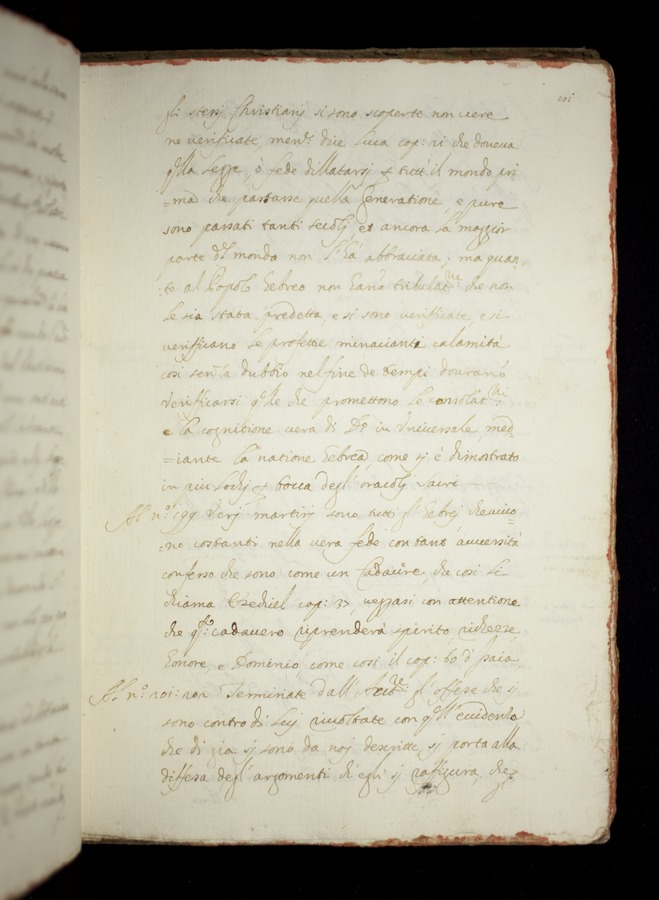 gli stessi Christianj si sono scoperte non vere
ne verificate, mentre dice Luca cap: 21 che doveva
q.lla legge, ò fede dillatarsj tutt'il mondo pri-
=ma che passasse quella generatione, e pure
sono passati tanti secolj, et ancora la maggior
parte del mondo non l'hà abbracciata; ma quan-
:to al Popolo hebreo non hanno tribulat.ne che non
le sia stata predetta, e si sono verificate, e si
verificano le profetie minacianti calamità
così senza dubbio nel fine de tempi dovranò
Verificarsi q.lle che promettono le consolat.ni
e la cognitione vera di D. in Universale, med-
=iante la natione hebrea, come si è dimostrato
in più lochj bocca degl'oracolj sacri
Al n.o 199 Verj martirj sono tutti gl'hebrej che vivo-
=no costanti nella vera fede con tant'avversità
confesso che sono come un Cadavere, che così li
chiama Ezechiel cap: 37, veggasi con attentione
che q.to cadavero riprenderà spirito, richezze,
honore e Dominio, come così il cap: 60 d'Isaia
Al n.o 201: 202 Terminate dall' gl'offese che si
sono contro di Lui rivoltate con q.ll'evidenza
che di già si sono da noj descritte, si porta alla
diffesa degl'argomenti ch'egli si raffigura, che